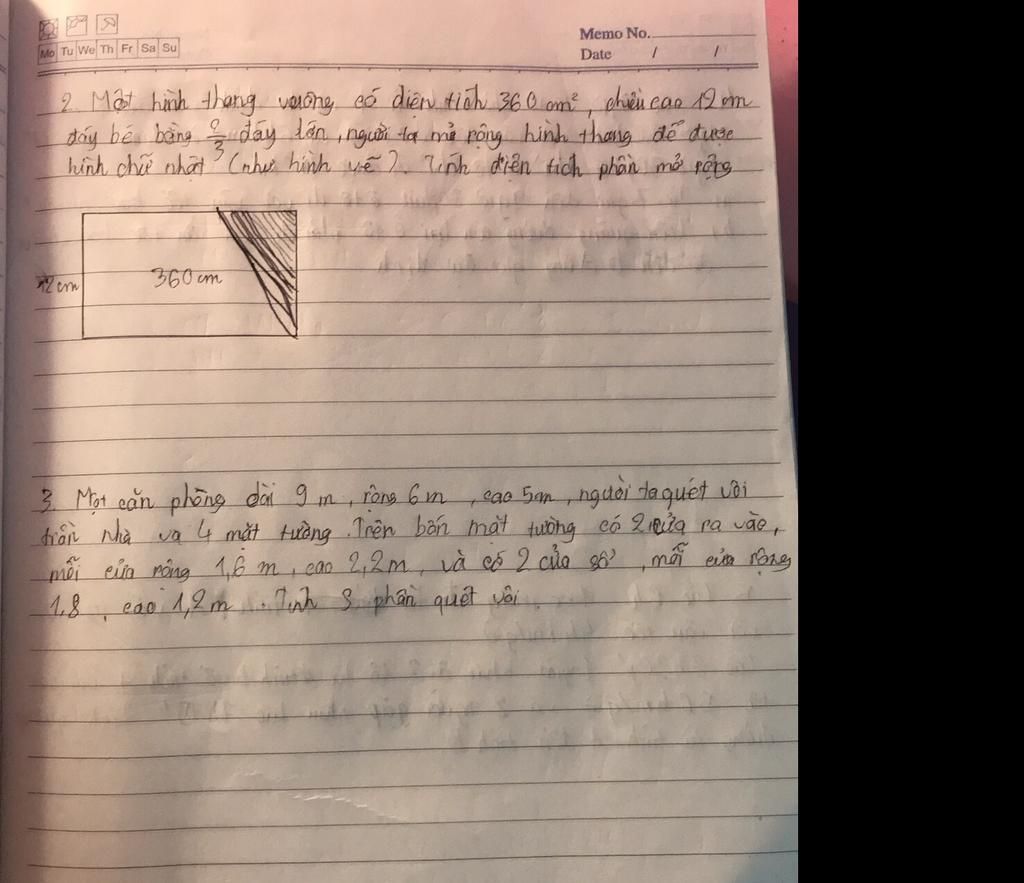 Memo No.
Mo Tu We Th Fr Sa Su
Date / /
2. Một hình thang vuông có diện tích 360 cm², chiều cao 12 cm
đáy bé bằng 2/3 đáy lớn, người ta mở rộng hình thang để được
hình chữ nhật (như hình vẽ). Tính diện tích phần mở rộng
12 cm
360 cm
3. Một căn phòng dài 9 m, rộng 6 m, cao 5m, người ta quét vôi
trần nhà và 4 mặt tường. Trên bốn mặt tường có 2 cửa ra vào,
mỗi cửa rộng 1,6 m, cao 2,2m, và có 2 của sổ, mỗi cửa rộng
1,8, cao 1,2m. Tính S phần quét vôi.